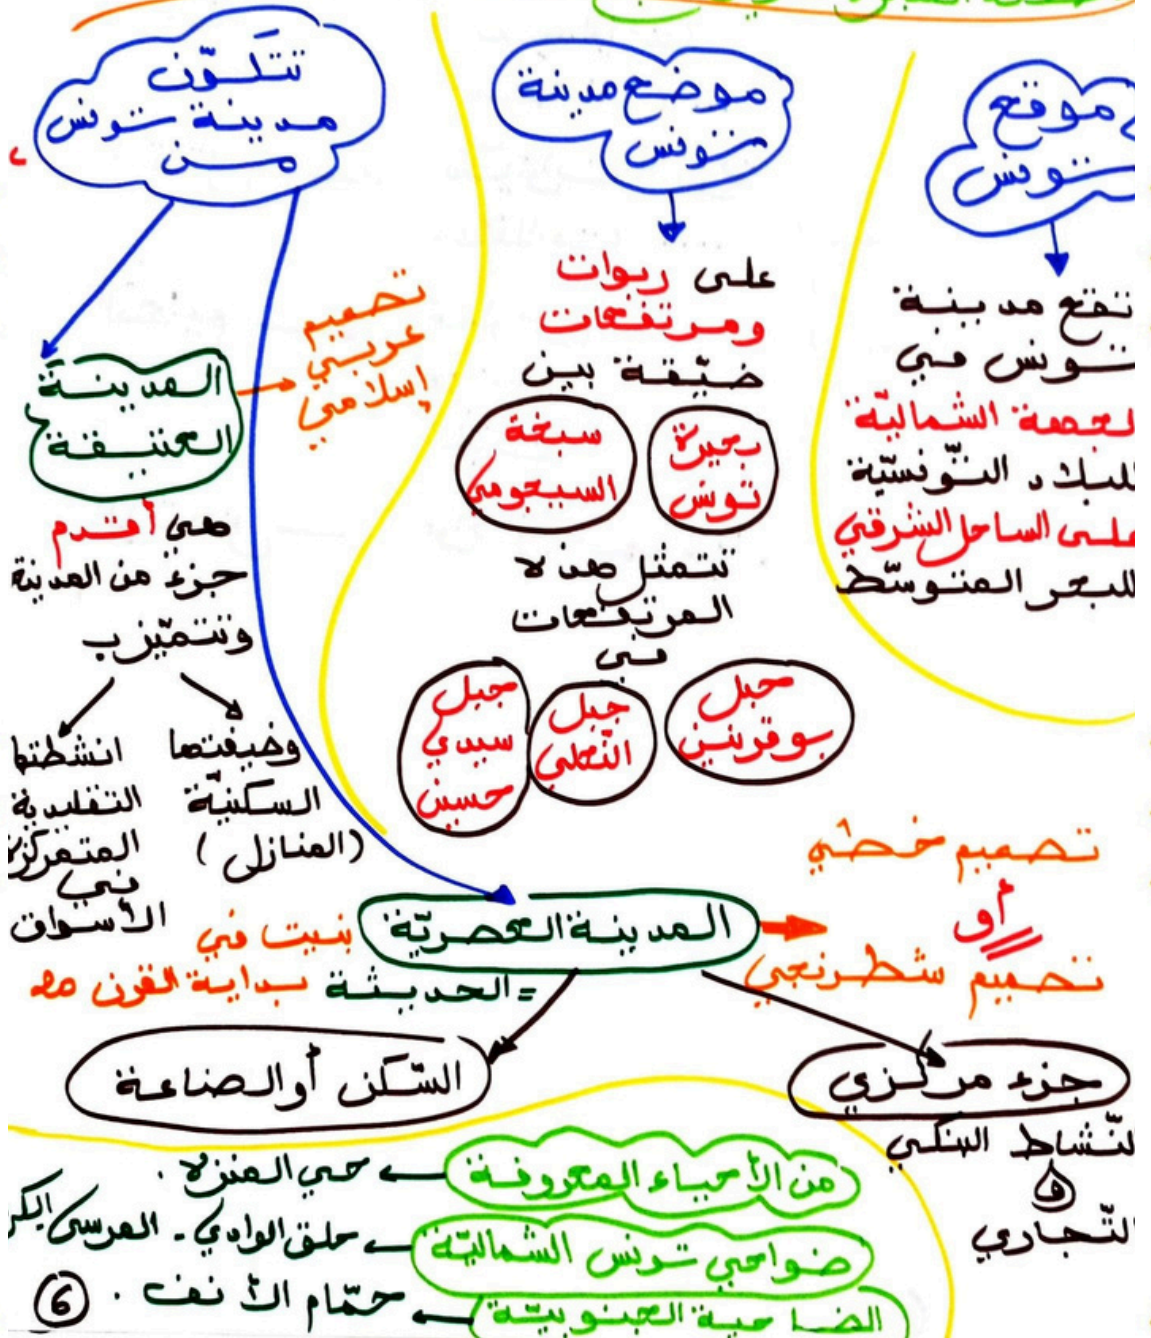 موقع
تونس
تقع مدينة
تونس في
لجهة الشماليّة
للبلاد التّونسيّة
على الساحل الشرقي
للبحر المتوسّط
موضع مدينة
تونس
على ربوات
ومرتفعات
ضيّقة بين
بحيرة
تونس
سبخة
السيجومي
تتمثل هذه
المرتفعات
في
جبل
بوقرنين
جبل
النّحلي
جبل
سيدي
حسين
تتكوّن
مدينة تونس
من
المدينة
العتيقة
تصميم
عربي
إسلامي
هي أقدم
جزء من المدينة
وتتميّز ب
وضيفتها
السكنيّة
(المنازل)
انشطتها
التقليدية
المتمركز
في
الأسواق
المدينة العصريّة
= الحديثة
بنيت في
بداية القرن 20
تصميم خطي
أو
تصميم شطرنجي
جزء مركزي
لنّشاط البنكي
و
لتّجاري
السّكن أو الصناعة
من الأحياء المعروفة ← حي المنزه .
ضواحي تونس الشماليّة ← حلق الوادي - المرسى - الكر
الضاحية الجنوبيّة ← حمّام الأنف .
6